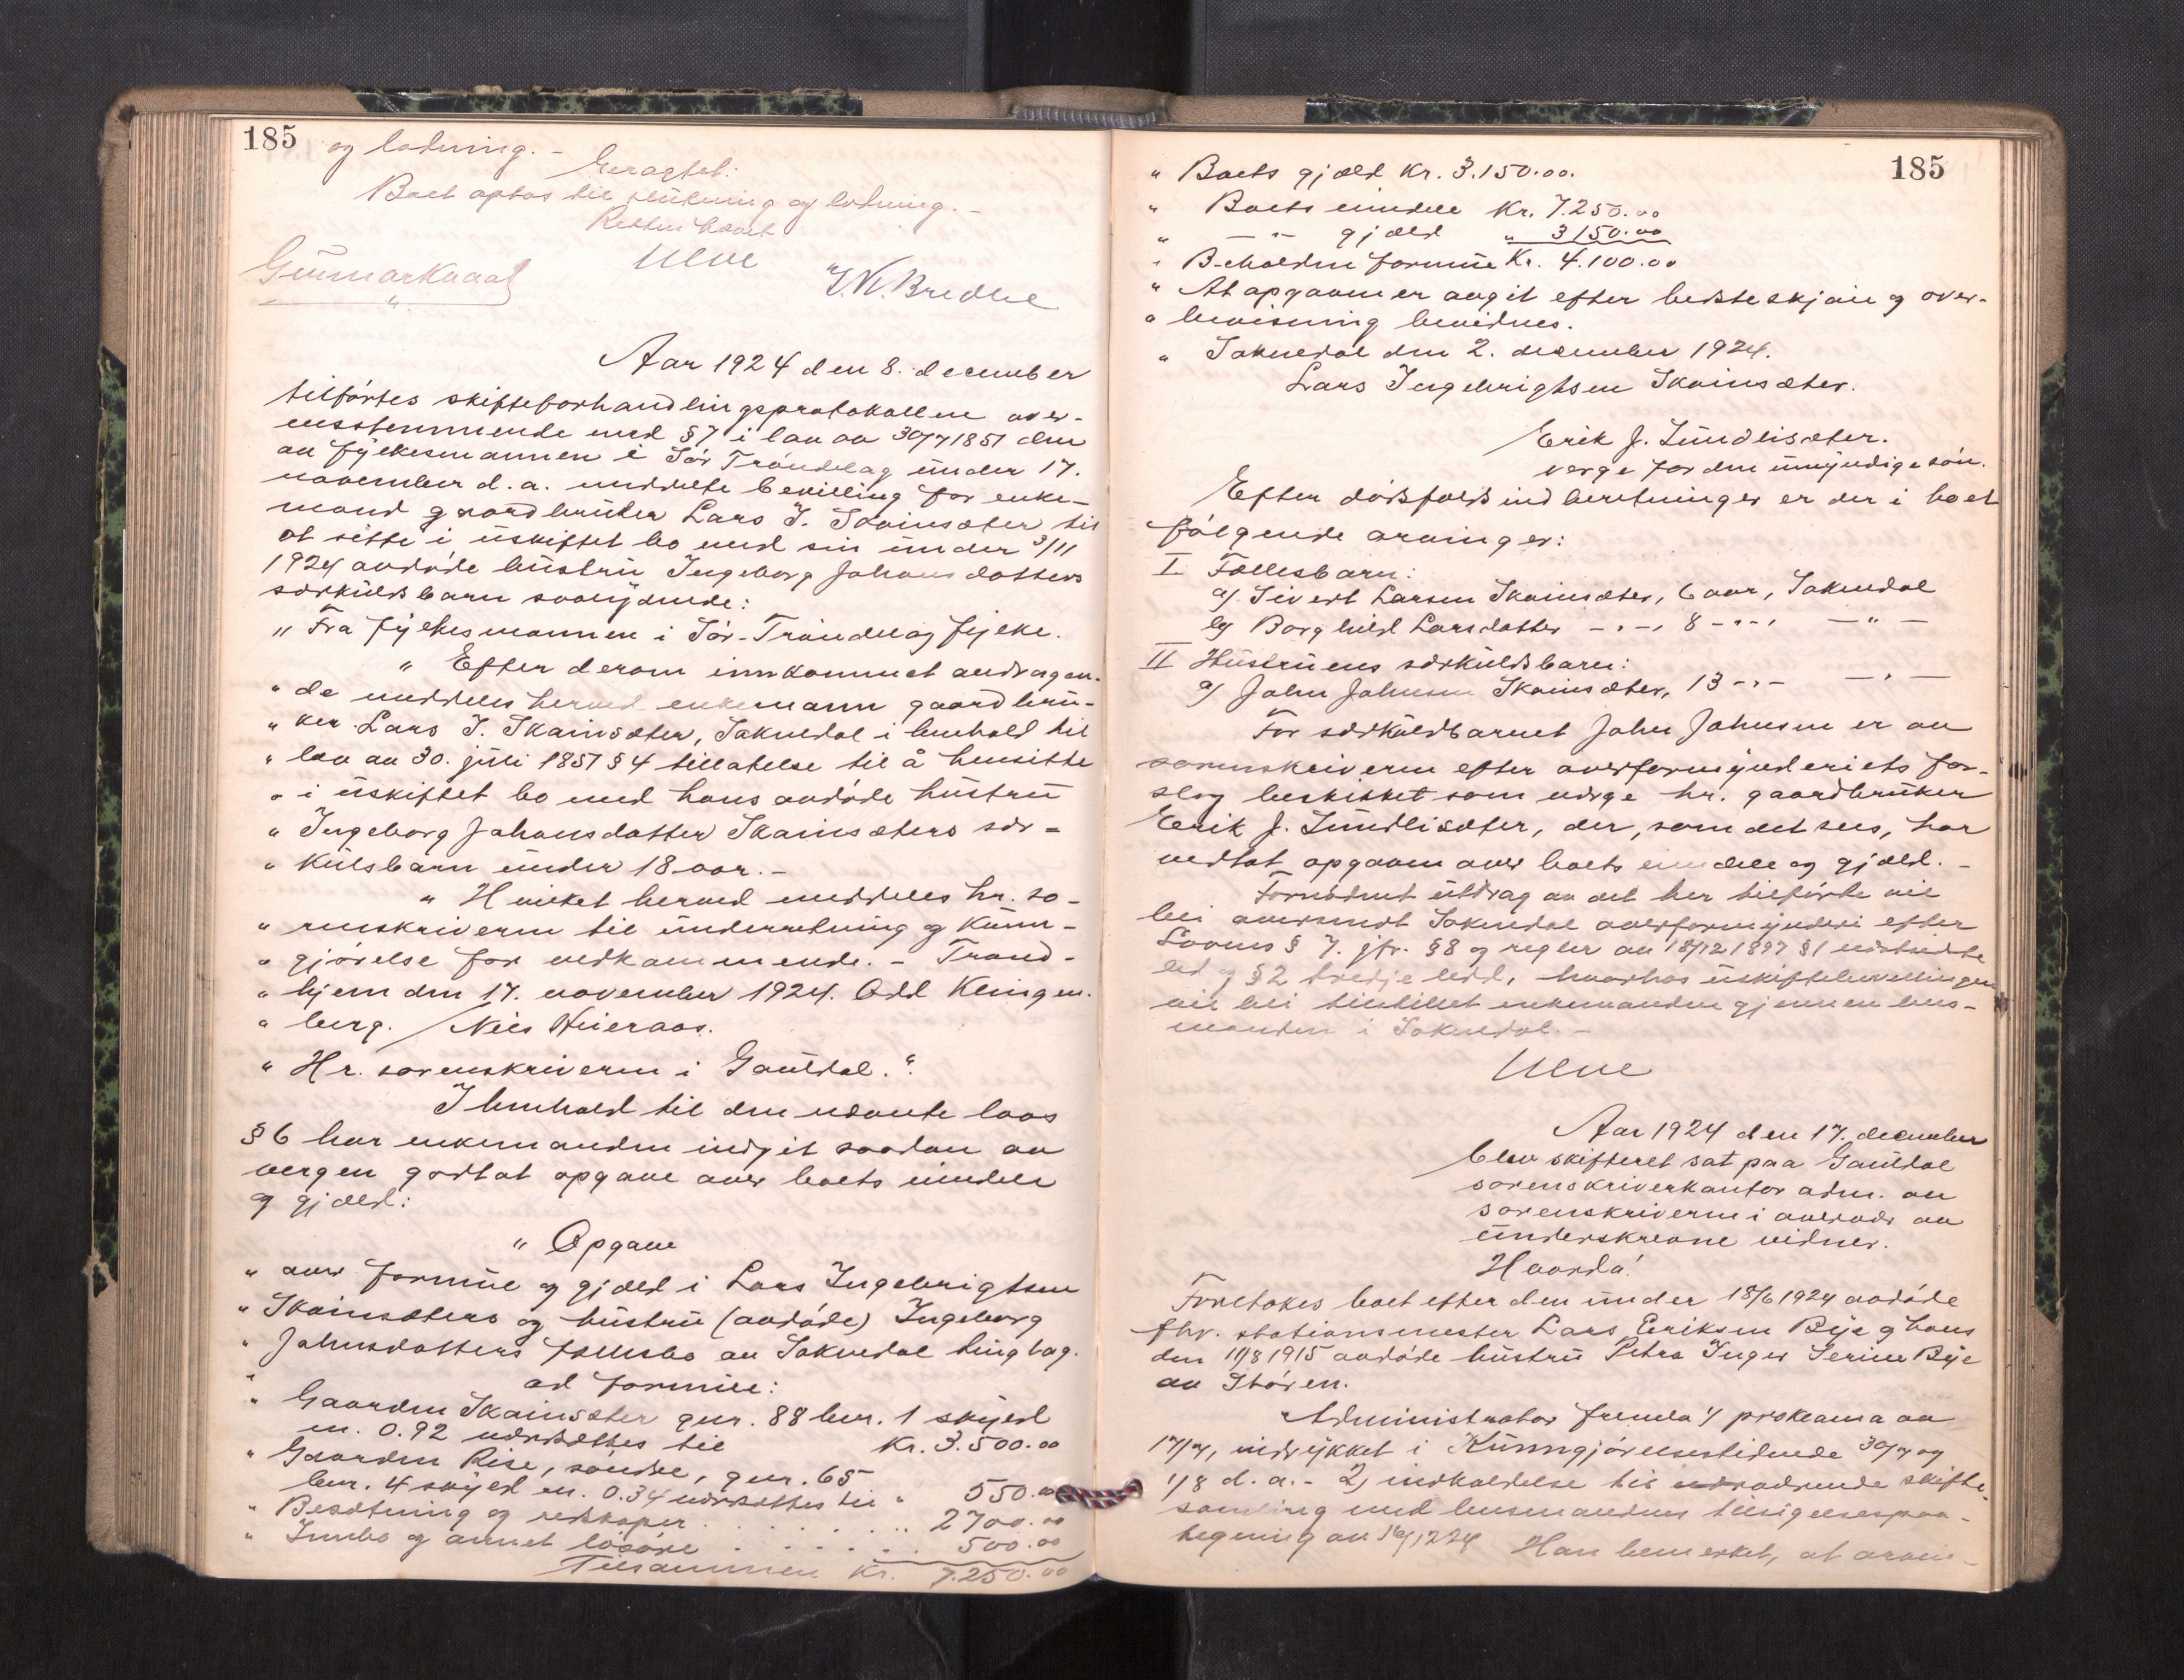 185
og lodning. -
Eragtet:
Boet optas til slutning og lodning. -
Retten hævet
Ulve
Gunnar Kaaat
J. N. Bredhe
Aar 1924 den 8. december
tilførtes skifteforhandlingsprotokollen over-
ensstemmende med § 7 i lov av 30/7 1851 den
av fylkesmannen i Sør Trøndelag under 17.
november d. a. meddelte bevilling for enke-
mand gaardbruker Lars I. Skainsæter til
at sitte i uskiftet bo med sin under 3/11
1924 avdøde hustru Ingeborg Johansdatters
særkulds barn saalydende:
" Fra fylkesmannen i Sør-Trøndelag fylke.
" Efter derom innkommet andragen-
" de meddeles herved enkemann gaardbru-
" ker Lars I. Skainsæter, Soknedal i henhold til
" lov av 30. juli 1851 § 4 tillatelse til å hensitte
" i uskiftet bo med hans avdøde hustru
" Ingeborg Johansdatter Skainsæters sær-
" kulsbarn under 18 aar. -
" Hvilket herved meddeles hr. so-
" renskriveren til underretning og kunn-
" gjørelse for vedkommende. - Trond-
" hjem den 17. november 1924. Odd Klingen-
" berg. / Neis Hieraas.
" Hr. sorenskriveren i Gauldal. "
I henhold til den nævnte lovs
§ 6 har enkemanden indgit saadan av
vergen godtat opgave over boets eiendele
og gjæld:
" Opgave
" over formue og gjæld i Lars Ingebrigtsen
" Skainsæters og hustru (avdøde) Ingeborg
" Johnsdatters fællesbo av Soknedal tinglag.
" ad formue:
" Gaarden Skainsæter gnr. 88 bnr. 1 skyld
m. 0.92 værdsættes til Kr. 3.500.00
" Gaarden Rise, søndre, gnr. 65
bnr. 4 skyld m. 0.34 værdsættes til " 550.00
" Besætning og redskaper . . . . . . . . " 2700.00
" Innbo og annet løsøre . . . . . . " 500.00
Tilsammen Kr. 7.250.00
185
" Boets gjæld Kr. 3.150.00.
" Boets eiendele Kr. 7.250.00
" — " — gjæld " 3150.00
" Beholden formue Kr. 4.100.00
" At opgaven er avgit efter bedste skjøn og over-
" bevisning bevidnes.
" Soknedal den 2. december 1924.
Lars Ingebrigtsen Skainsæter.
Erik J. Lundlisæter.
verge for den umyndige søn.
Efter dødsfaldsindberetningen er der i boet
følgende arvinger:
I. Fællesbarn:
a) Sivert Larsen Skainsæter, 6 aar, Soknedal
b) Borghild Larsdatter — " —, 8 — " — — " —
II Hustruens særkuldsbarn:
a) John Johnsen Skainsæter, 13 — " — — " —
For særkuldbarnet John Johnsen er av
sorenskriveren efter overformynderiets for-
slag beskikket som verge hr. gaardbruker
Erik J. Lundlisæter, der, som det sees, har
vedtat opgaven over boets eiendele og gjæld. -
Fornødent utdrag av det her tilførte vil
bli oversendt Soknedal overformynderi efter
Lovens § 7. jfr. § 8 og regler av 18/12 1897 § 1 næstsidste
led og § 2 tredje ledd, hvorhos uskiftebevillingen
vil bli tilstillet enkemanden gjennem lens-
manden i Soknedal. -
Ulve
Aar 1924 den 17. december
blev skifteret sat paa Gauldal
sorenskriverkontor adm. av
sorenskriveren i overvær av
underskrevne vidner.
Hvorda!
Foretokes boet efter den under 18/6 1924 avdøde
fhv. stationsmester Lars Eriksen Bye og hans
den 11/8 1915 avdøde hustru Petra Inger Serine Bye
av Støren.
Administrator fremla 1) proklama av
17/7, indrykket i Kunngjørelsestidende 30/7 og
1/8 d. a. - 2) indkaldelse til skifte-
samling med lensmandens tilsigelsespaa-
tegning av 16/12 24 Han bemerket, at arvin-